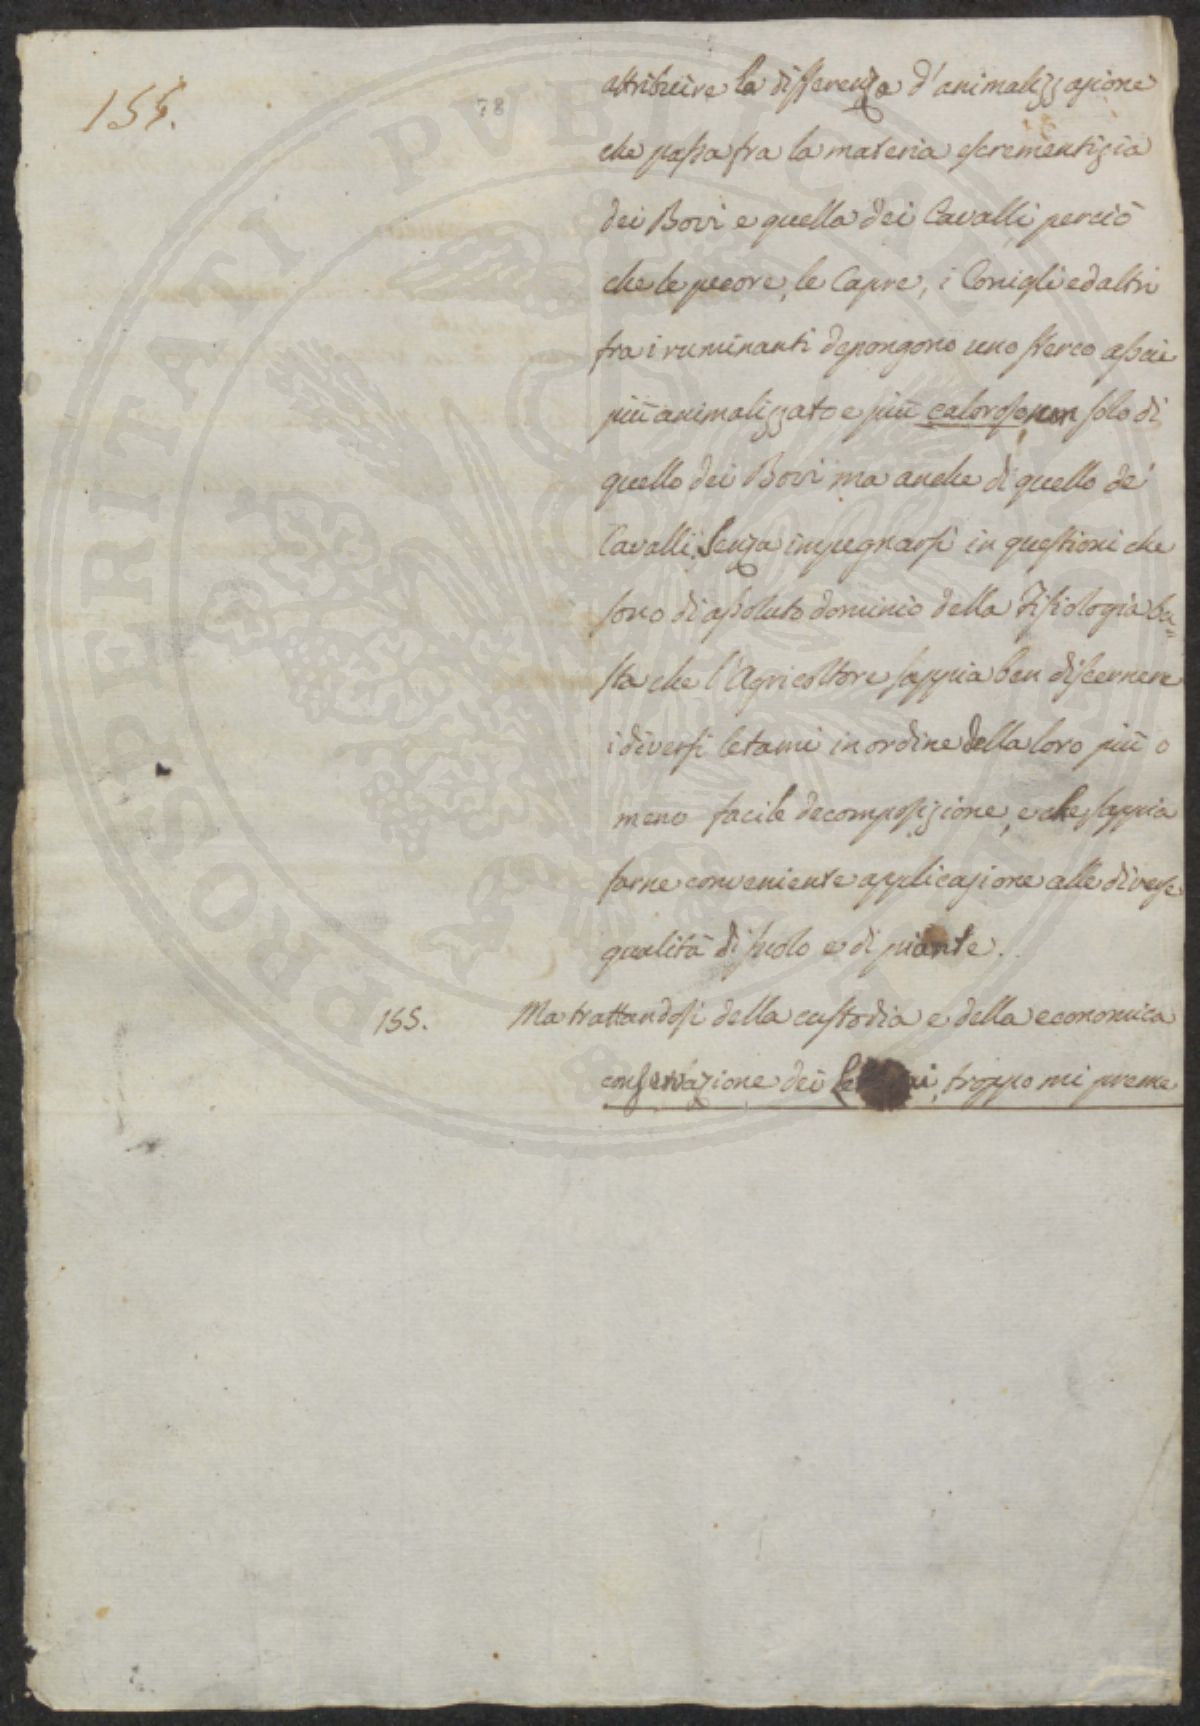 155.
78
attribuire la differenza d'animalizzazione
che passa fra la materia escrementizia
dei Bovi e quella dei Cavalli perciò
che le pecore, le Capre, i Conigli ed altri
fra i ruminanti depongono uno sterco assai
più animalizzato e più caloroso non solo di
quello dei Bovi ma anche di quello de'
Cavalli. Senza impegnarsi in questioni che
sono di assoluto dominio della Fisiologia ba=
sta che l'Agricoltore sappia ben discernere
i diversi letami in ordine della loro più o
meno facile decomposizione, e che sappia
farne conveniente applicazione alle diverse
qualità di suolo e di piante.
155. Ma trattandosi della custodia e della economica
conservazione dei troppo mi preme
PROSPERITATI PVBLICAE